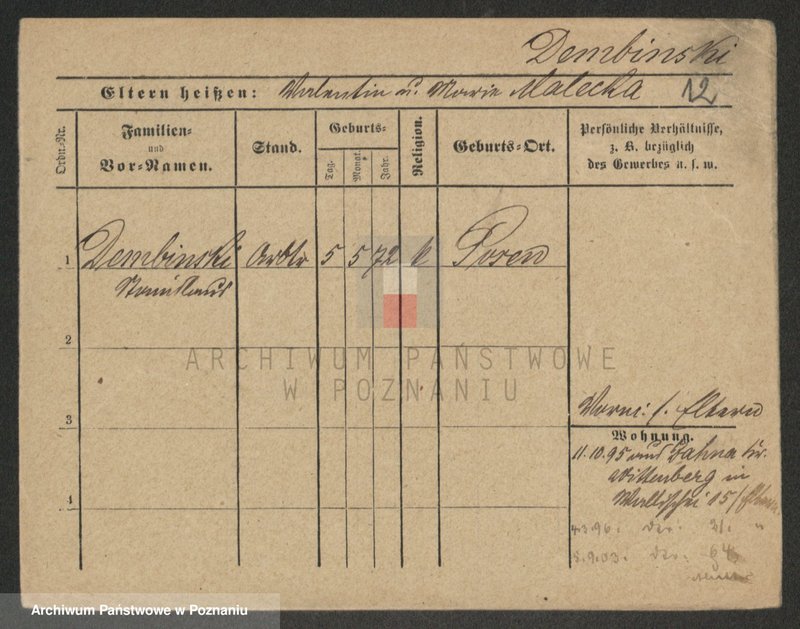 Dembinski
Eltern heißen: Valentin u. Marie Malecka 12
Ordn.-Nr.
Familien-
und
Vor-Namen.
Stand.
Geburts-
Tag.
Monat.
Jahr.
Religion.
Geburts-Ort.
Persönliche Verhältnisse,
z. B. bezüglich
des Gewerbes u. s. w.
1 Dembinski Arbtr 5 5 72 k Posen
Stanislaus
2
ARCHIWUM PAŃSTWOWE
W POZNANIU
3
Eltern
Wohnung.
11.10.95 aus Kr.
Wittenberg in
Wallischei 15
4
4.3.96.
8.9.03.
Archiwum Państwowe w Poznaniu